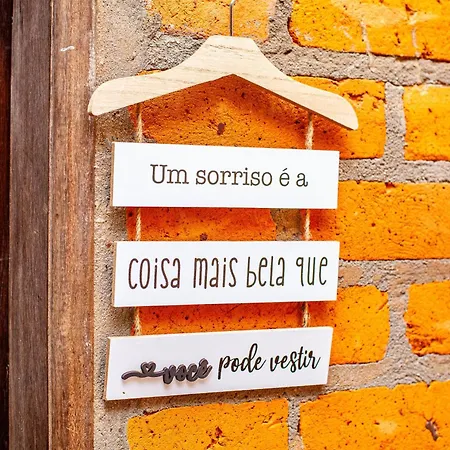 Um sorriso é a
coisa mais bela que
você pode vestir